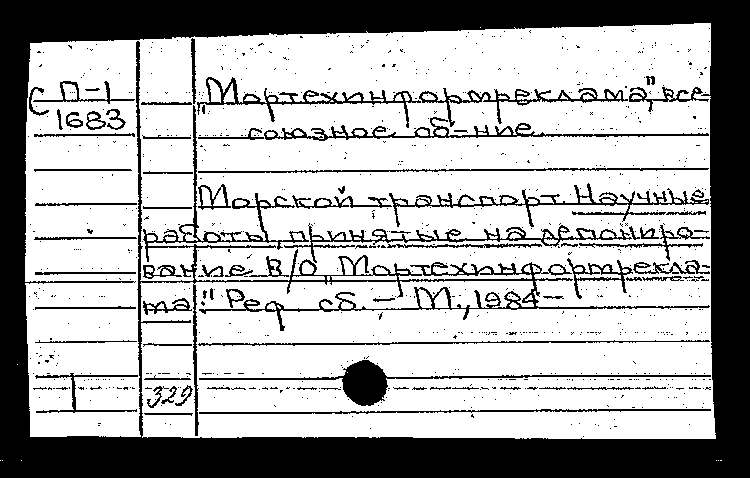 С П-1
1683
„Мортехинформреклама", все-
союзное об-ние
Морской транспорт. Научные
работы, принятые на депониро-
вание В/О „Мортехинформрекла-
ма". Реф. сб. – М., 1984–
329